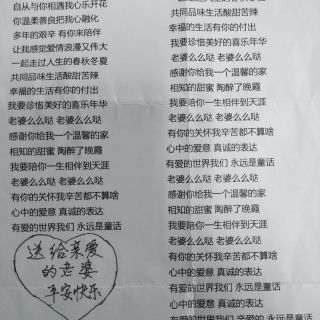 自从与你相遇我心乐开花
你温柔善良把我心融化
多年的艰辛 有你来陪伴
让我感觉爱情浪漫又伟大
一起走过人生的春秋冬夏
共同品味生活酸甜苦辣
幸福的生活有你的付出
我要珍惜美好的喜乐年华
老婆么么哒 老婆么么哒
感谢你给我一个温馨的家
相知的甜蜜 陶醉了晚霞
我要陪你一生相伴到天涯
老婆么么哒 老婆么么哒
有你的关怀我辛苦都不算啥
心中的爱意 真诚的表达
有爱的世界我们 永远是童话
送给亲爱
的老婆
平安快乐
共同品味生活酸甜苦辣
幸福的生活有你的付出
我要珍惜美好的喜乐年华
老婆么么哒 老婆么么哒
感谢你给我一个温馨的家
相知的甜蜜 陶醉了晚霞
我要陪你一生相伴到天涯
老婆么么哒 老婆么么哒
有你的关怀我辛苦都不算啥
心中的爱意 真诚的表达
有爱的世界我们 永远是童话
老婆么么哒 老婆么么哒
感谢你给我一个温馨的家
相知的甜蜜 陶醉了晚霞
我要陪你一生相伴到天涯
老婆么么哒 老婆么么哒
有你的关怀我辛苦都不算啥
心中的爱意 真诚的表达
有爱的世界我们 亲爱的 永远是童话